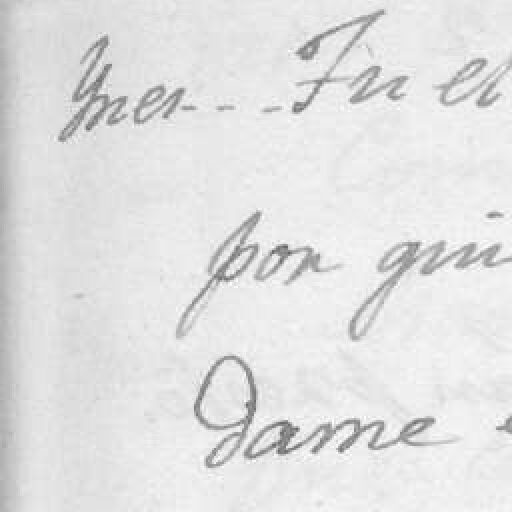 Ynes - - - Tu el
por qui
Dame